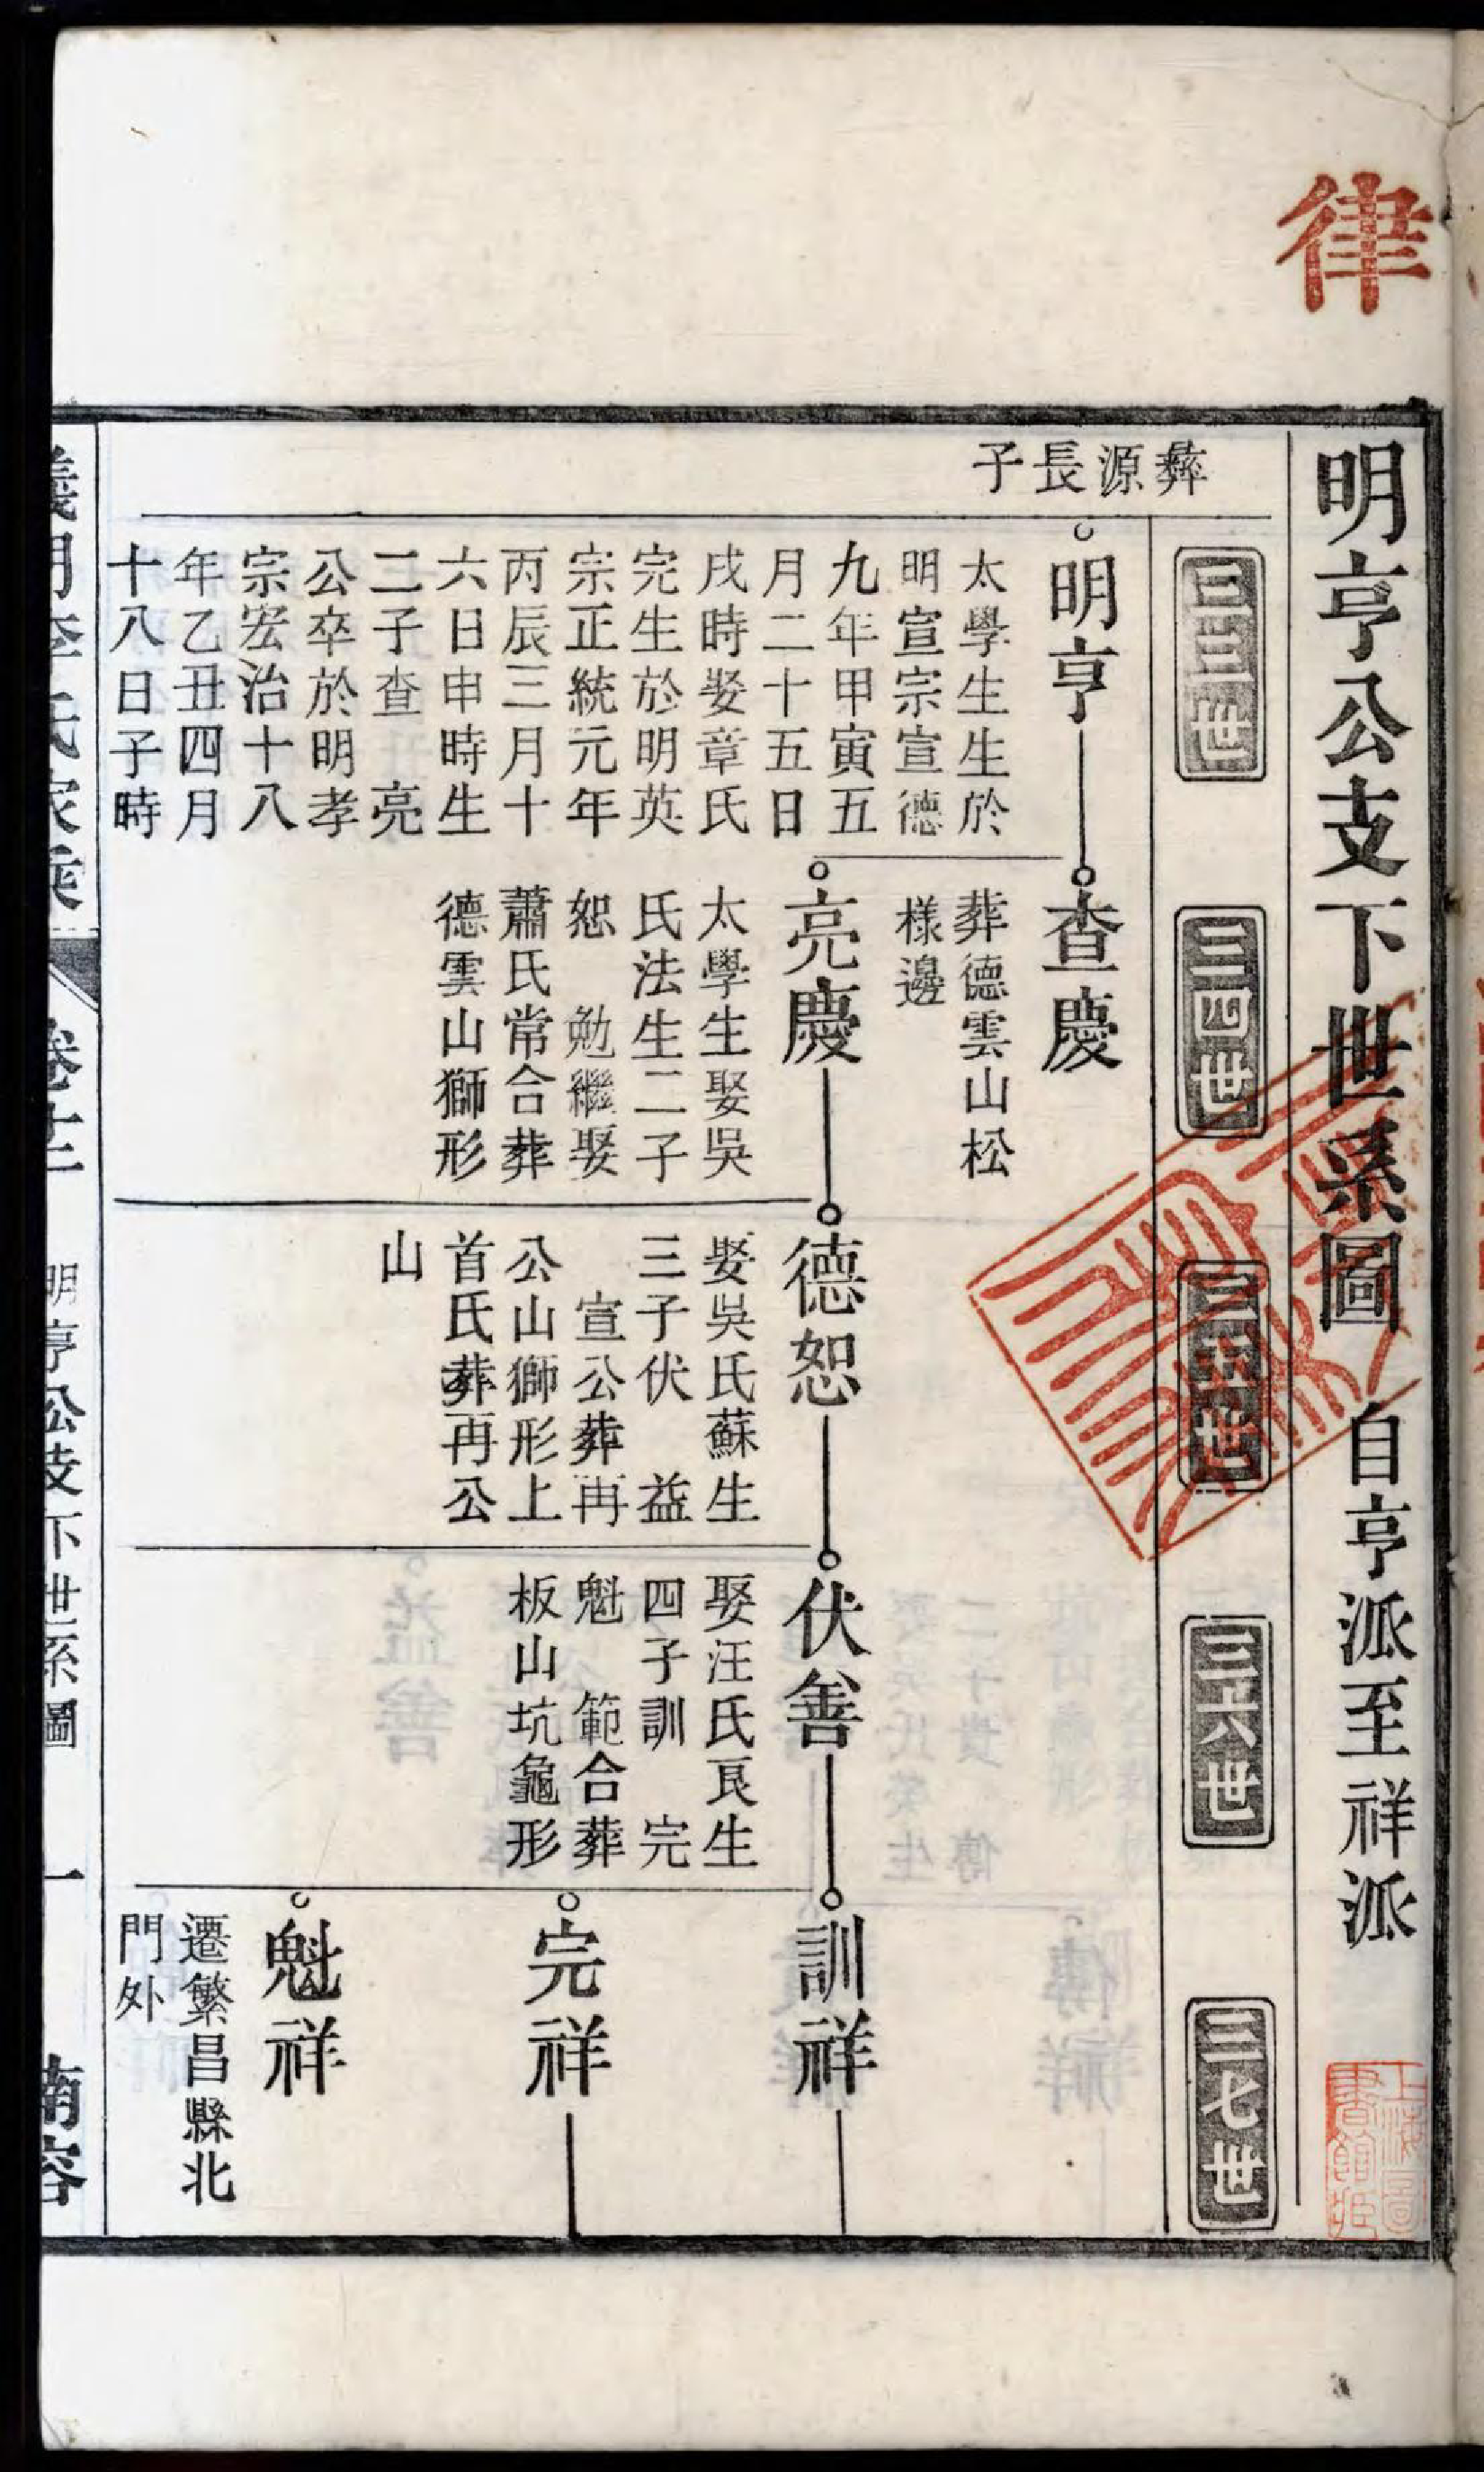 律
明亨公支下世系圖 自亨派至祥派
三三世
三四世
三五世
三六世
三七世
彝源長子
明亨
太學生生於
明宣宗宣德
九年甲寅五
月二十五日
戌時娶章氏
完生於明英
宗正統元年
丙辰三月十
六日申時生
二子查 亮
公卒於明孝
宗宏治十八
年乙丑四月
十八日子時
查慶
葬德雲山松
樣邊
亮慶
太學生娶吳
氏法生二子
恕 勉繼娶
蕭氏常合葬
德雲山獅形
德恕
娶吳氏蘇生
三子伏 益
宣公葬再
公山獅形上
首氏葬再公
山
伏善
娶汪氏良生
四子訓 完
魁 範合葬
板山坑龜形
訓祥
完祥
魁祥
遷繁昌縣北
門外
卷十二
明亨公支下世系圖
一
上海圖書館藏